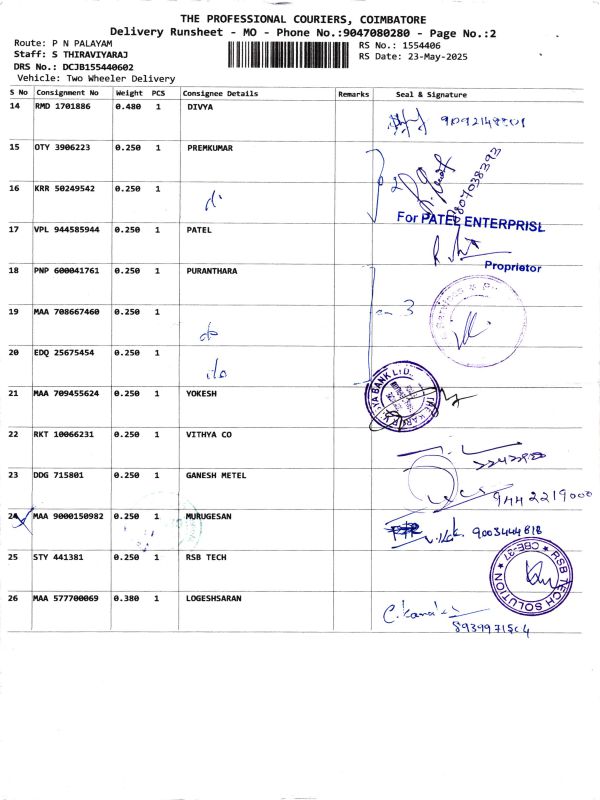 THE PROFESSIONAL COURIERS, COIMBATORE
Delivery Runsheet - MO - Phone No.:9047080280 - Page No.:2
Route: P N PALAYAM
RS No.: 1554406
Staff: S THIRAVIYARAJ
RS Date: 23-May-2025
DRS No.: DCJB155440602
Vehicle: Two Wheeler Delivery
S No Consignment No Weight PCS Consignee Details Remarks Seal & Signature
14 RMD 1701886 0.480 1 DIVYA
15 OTY 3906223 0.250 1 PREMKUMAR
2
16 KRR 50249542 0.250 1
For PATEL ENTERPRISE
17 VPL 944585944 0.250 1 PATEL
Proprietor
18 PNP 600041761 0.250 1 PURANTHARA
19 MAA 708667460 0.250 1
3
do
20 EDQ 25675454 0.250 1
do
21 MAA 709455624 0.250 1 YOKESH
22 RKT 10066231 0.250 1 VITHYA CO
23 DDG 715801 0.250 1 GANESH METEL
9442219000
24 MAA 9000150982 0.250 1 MURUGESAN
9003444818
25 STY 441381 0.250 1 RSB TECH
RSB TECH SOLUTION CBE-37
26 MAA 577700069 0.380 1 LOGESHSARAN